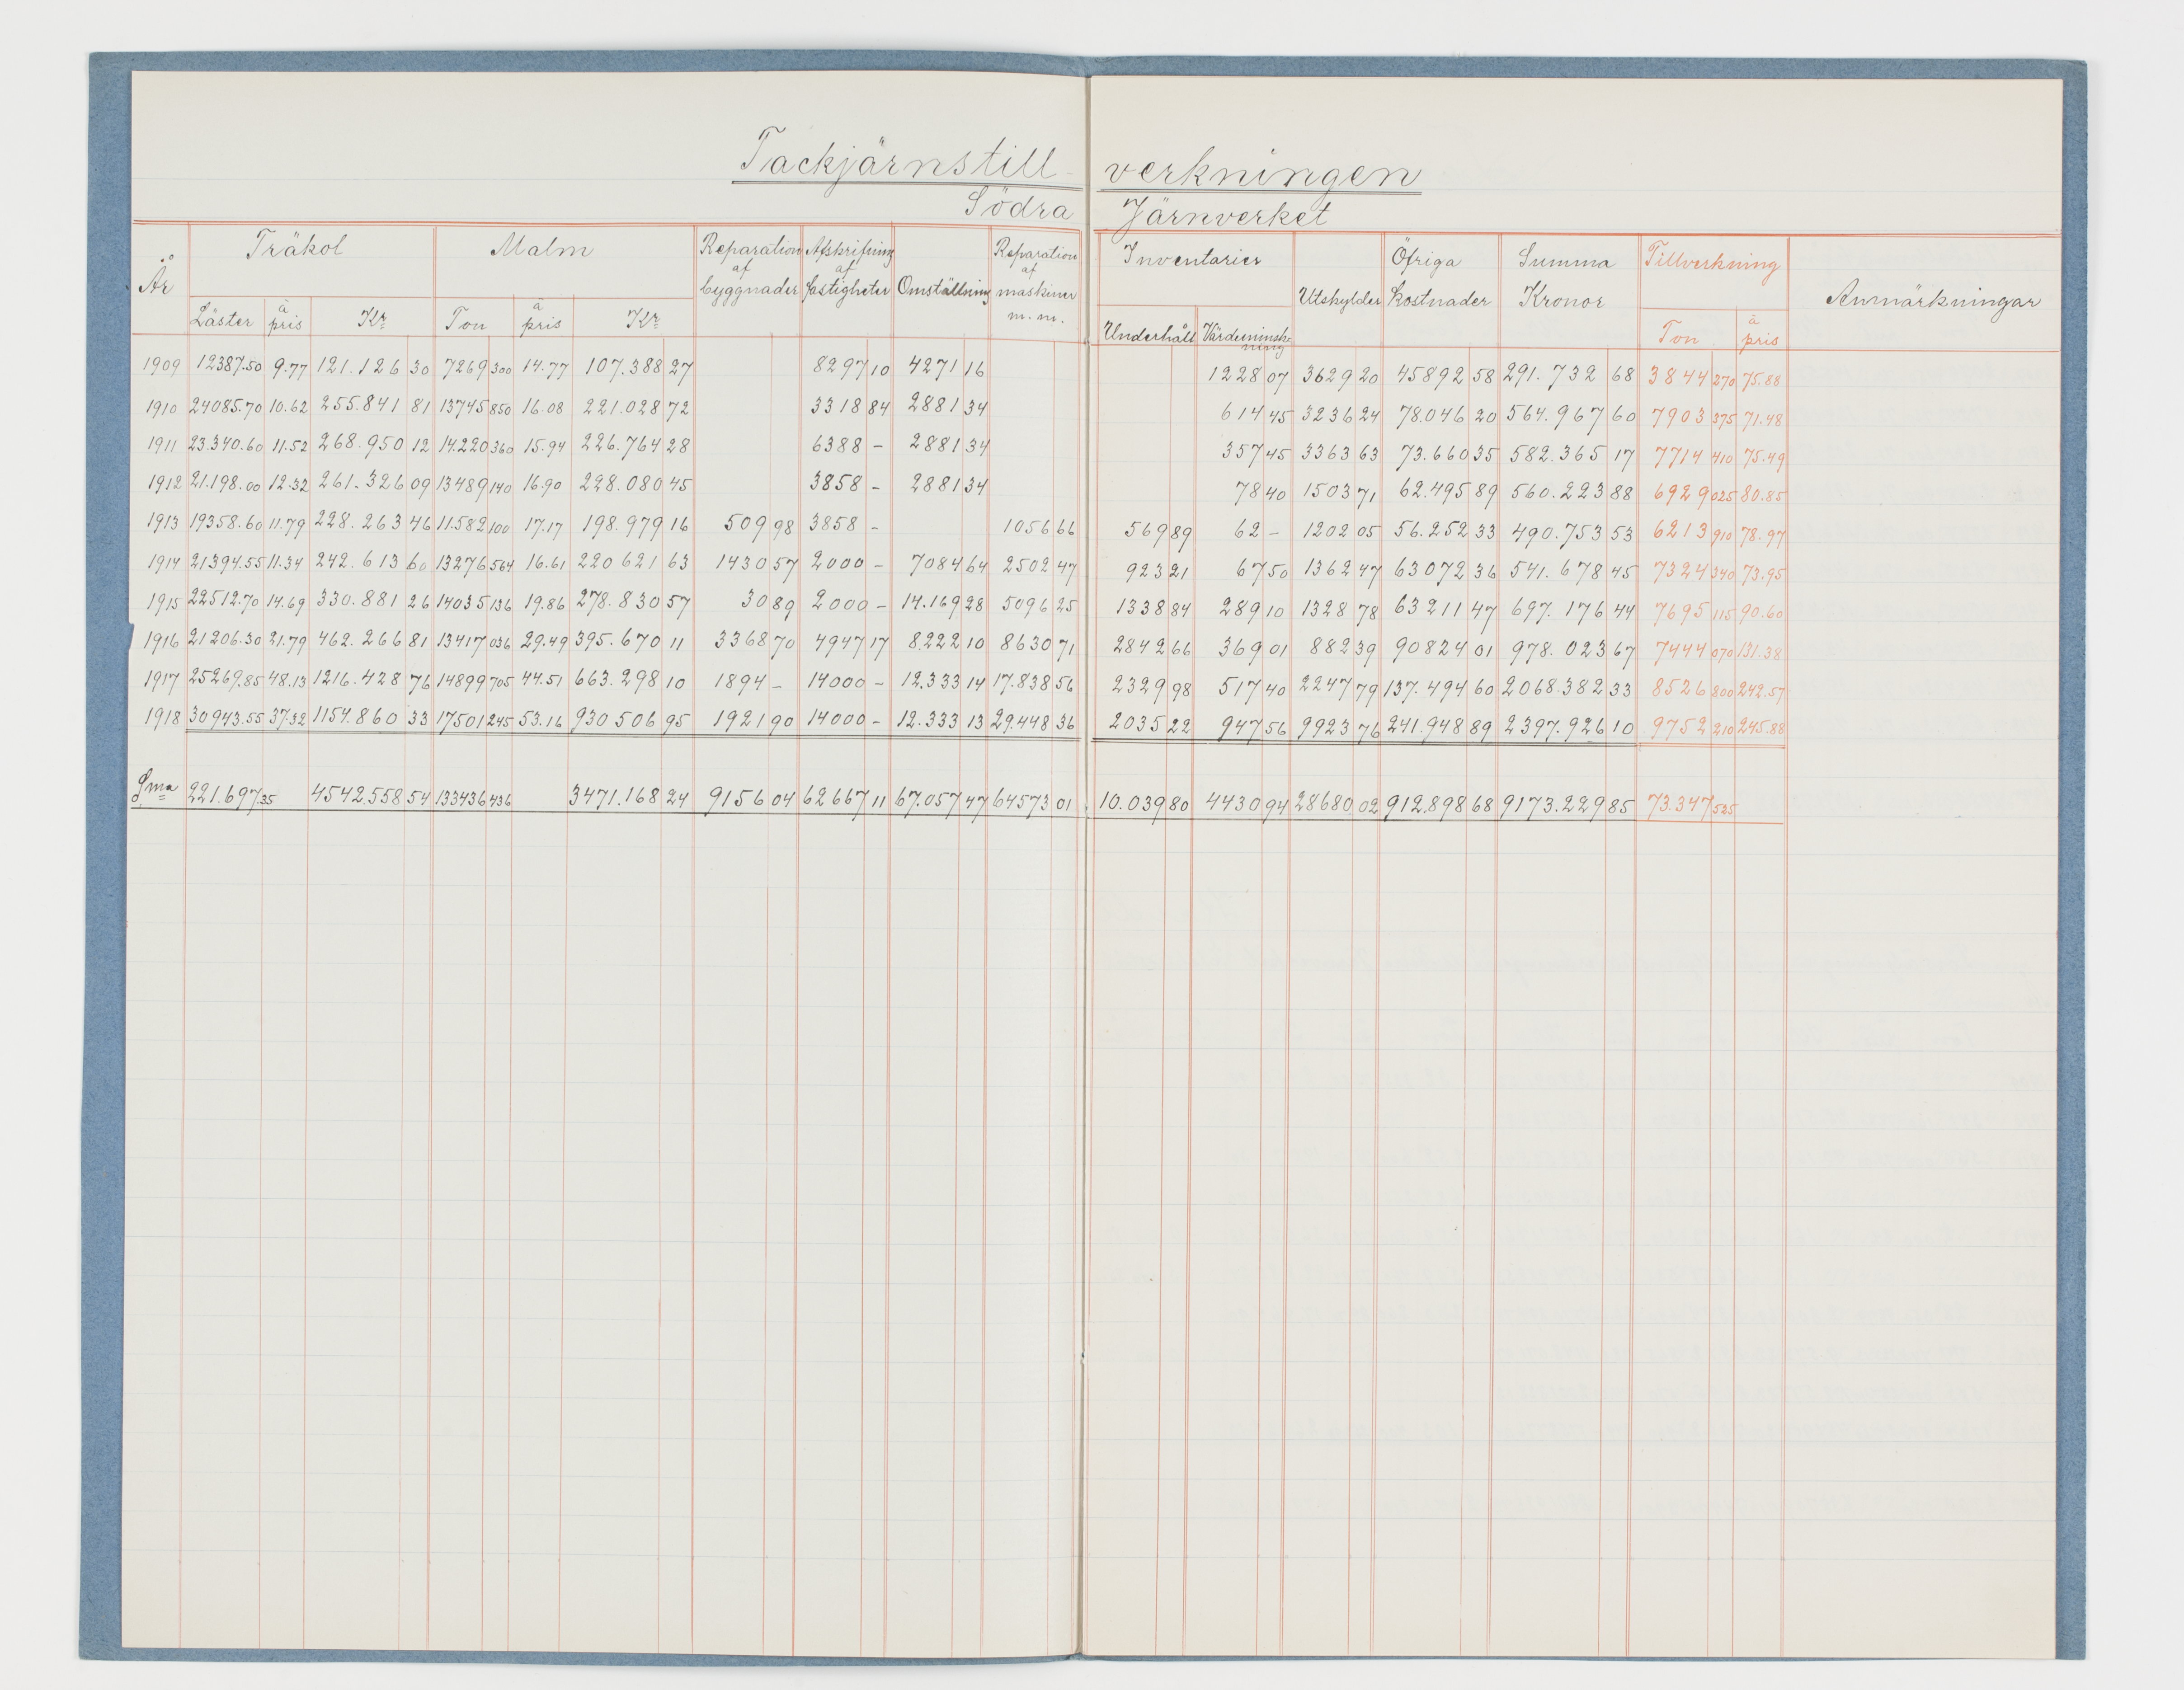 Tackjärnstill-verkningen
Södra Järnverket
År Träkol Malm Reparation af byggnader Afskrifning af fastigheter Omställning Reparation af maskiner m.m. Inventarier Utskylder Öfriga kostnader Summa Kronor Tillverkning Anmärkningar
Läster à pris Kr Ton à pris Kr Underhåll Värdeminskning Ton à pris
1909 12387.50 9.77 121.126 30 7269 300 14.77 107.388 27 8297 10 4271 16 1228 07 3629 20 45892 58 291.732 68 3844 270 75.88
1910 24085.70 10.62 255.841 81 13745 850 16.08 221.028 72 3318 84 2881 34 614 45 3236 24 78.046 20 564.967 60 7903 375 71.48
1911 23.340.60 11.52 268.950 12 14.220 360 15.94 226.764 28 6388 - 2881 34 357 45 3363 63 73.660 35 582.365 17 7714 410 75.49
1912 21.198.00 12.32 261.326 09 13489 140 16.90 228.080 45 3858 - 2881 34 78 40 1503 71 62.495 89 560.223 88 6929 025 80.85
1913 19358.60 11.79 228.263 46 11.582 100 17.17 198.979 16 509 98 3858 - 1056 66 569 89 62 - 1202 05 56.252 33 490.753 53 6213 910 78.97
1914 21394.55 11.34 242.613 60 13276 564 16.61 220 621 63 1430 57 2000 - 7084 64 2502 47 923 21 67 50 1362 47 63072 36 541.678 45 7324 340 73.95
1915 22512.70 14.69 330.881 26 14035 136 19.86 278.830 57 30 89 2000 - 14.169 28 5096 25 1338 84 289 10 1328 78 63211 47 697.176 44 7695 115 90.60
1916 21206.30 21.79 462.266 81 13417 036 29.49 395.670 11 3368 70 4947 17 8.222 10 8630 71 2842 66 369 01 882 39 90824 01 978.023 67 7444 070 131.38
1917 25269.85 48.13 1216.428 76 14899 705 44.51 663.298 10 1894 - 14000 - 12.333 14 17.838 56 2329 98 517 40 2247 79 137.494 60 2068.382 33 8526 800 242.57
1918 30943.55 37.32 1154.860 33 17501 245 53.16 930 506 95 1921 90 14000 - 12.333 13 29.448 36 2035 22 947 56 9923 76 241.948 89 2397.926 10 9752 210 245.88
Sma 221.697.35 4542.558 54 133436 436 3471.168 24 9156 04 62667 11 67.057 47 64573 01 10.039 80 4430 94 28680.02 912.898 68 9173.229 85 73.347 525